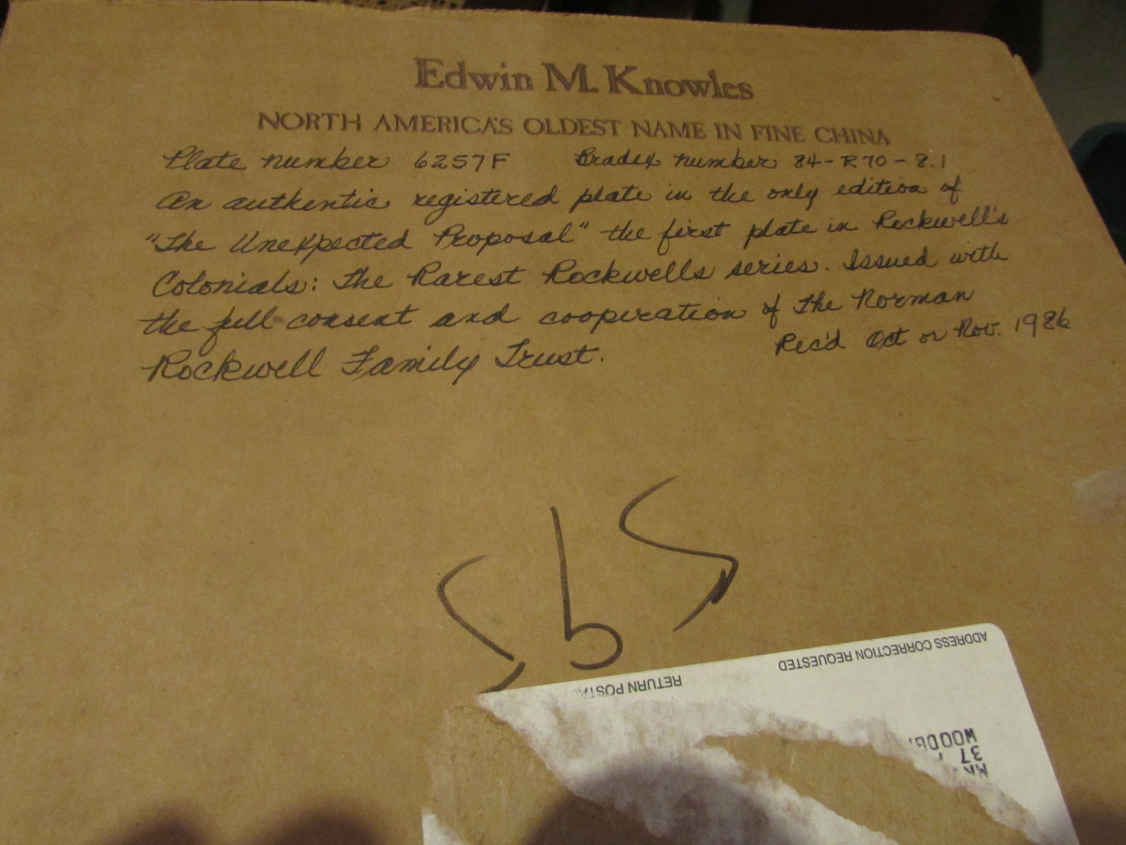 Edwin M. Knowles
NORTH AMERICA'S OLDEST NAME IN FINE CHINA
Plate number 6257F Bradex number 84-R70-8.1
An authentic registered plate in the only edition of
"The Unexpected Proposal" the first plate in Rockwell's
Colonials: The Rarest Rockwells series. Issued with
the full consent and cooperation of The Norman
Rockwell Family Trust.
Rec'd Oct or Nov. 1986
SbS
ADDRESS CORRECTION REQUESTED
RETURN POSTA
37
WOODB